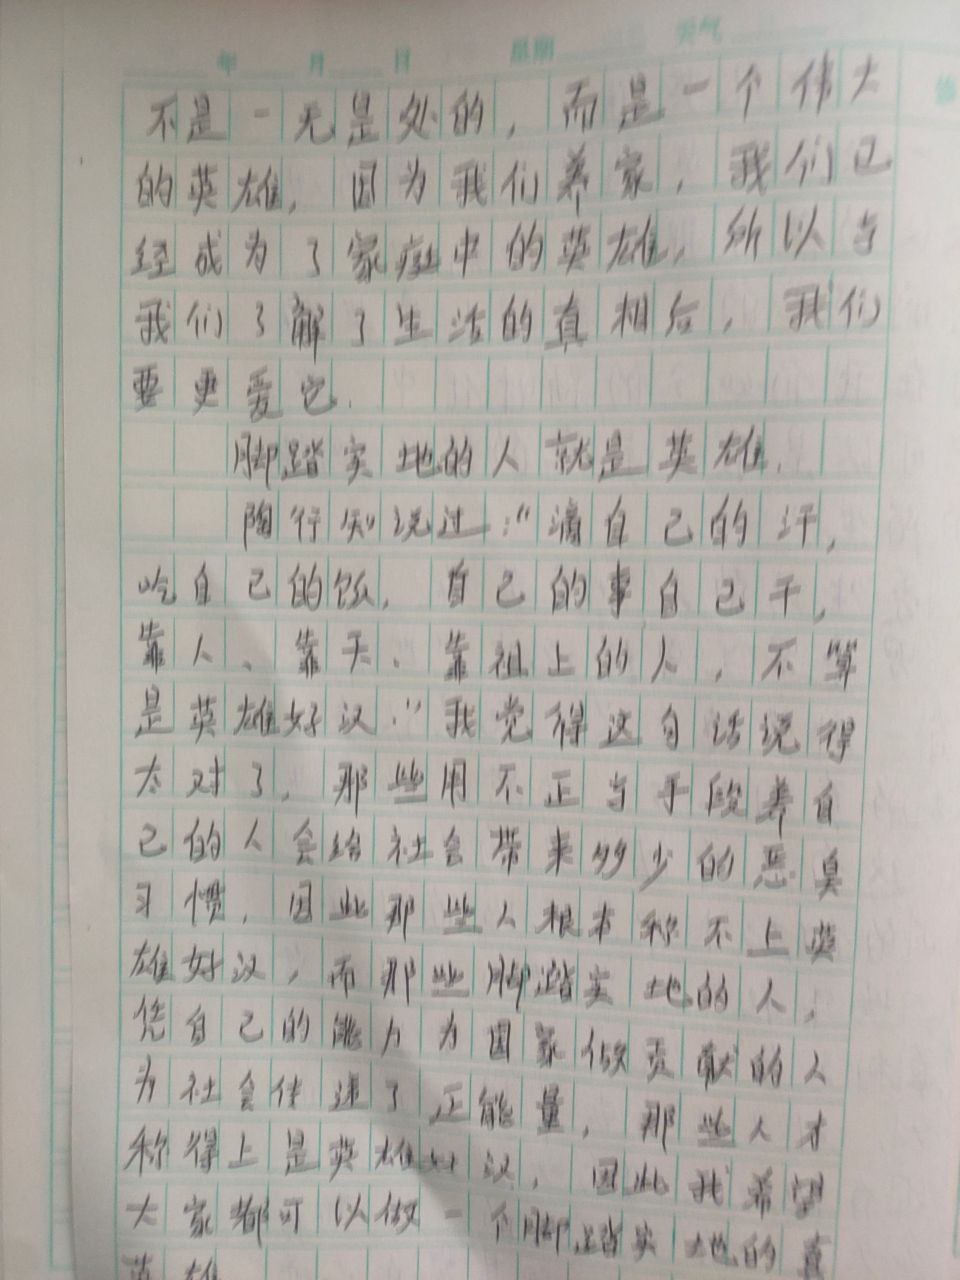 年 月 日 星期 天气
不是一无是处的，而是一个伟大
的英雄，因为我们养家，我们已
经成为了家庭中的英雄，所以当
我们了解了生活的真相后，我们
要更爱它.
脚踏实地的人就是英雄.
陶行知说过：“滴自己的汗，
吃自己的饭，自己的事自己干，
靠人、靠天、靠祖上的人，不算
是英雄好汉.”我觉得这句话说得
太对了，那些用不正当手段养自
己的人会给社会带来多少的恶臭
习惯，因此那些人根本称不上英
雄好汉，而那些脚踏实地的人，
凭自己的能力为国家做贡献的人
为社会传递了正能量，那些人才
称得上是英雄好汉，因此我希望
大家都可以做一个脚踏实地的真
英雄